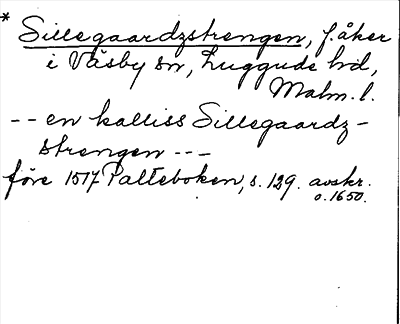 * Sillegaardzstrengen, f. åker
i Väsby sn, Luggude hd,
Malm. l.
-- en kalliss Sillegaardz-
strengen ---
före 1517 Palteboken, s. 129. avskr.
o. 1650.